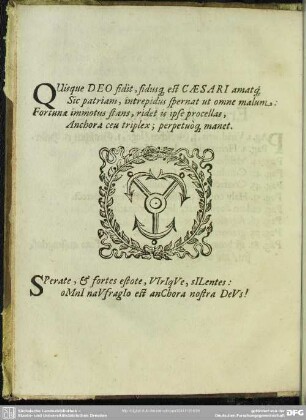 QUisque DEO fidit, fidusq; est CÆSARI amatq;
Sic patriam, intrepidus spernat ut omne malum:
Fortuna immotus stans, ridet is ipse procellas,
Anchora ceu triplex; perpetuoq; manet.
SPerate, & fortes estote, VIrIqVe, sILentes:
oMnI naVfragIo est anChora nostra DeVs!
Sächsische Landesbibliothek -
Staats- und Universitätsbibliothek Dresden
gefördert von der
Deutschen Forschungsgemeinschaft
DFG